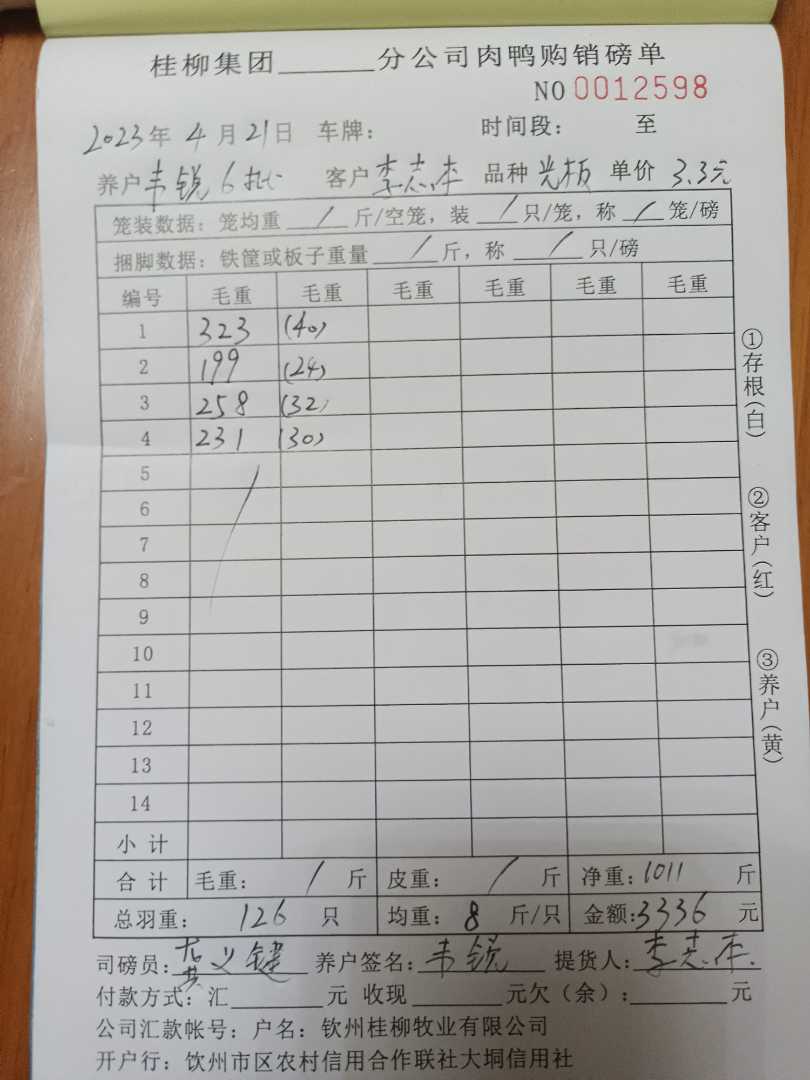 桂柳集团______分公司肉鸭购销磅单
NO 0012598
2023年4月21日 车牌： 时间段： 至
养户韦锐6批 客户李志本 品种光板 单价3.3元
笼装数据：笼均重 / 斤/空笼，装 / 只/笼，称 / 笼/磅
捆脚数据：铁筐或板子重量 / 斤，称 / 只/磅
编号 毛重 毛重 毛重 毛重 毛重 毛重
1 323 (40)
2 199 (24)
3 258 (32)
4 231 (30)
5
6
7
8
9
10
11
12
13
14
小计
合计 毛重： / 斤 皮重： / 斤 净重：1011 斤
总羽重： 126 只 均重： 8 斤/只 金额：3336 元
司磅员：黄义键 养户签名：韦锐 提货人：李志本
付款方式：汇______元 收现______元欠（余）：______元
公司汇款帐号：户名：钦州桂柳牧业有限公司
开户行：饮州市区农村信用合作联社大垌信用社
①存根（白）
②客户（红）
③养户（黄）